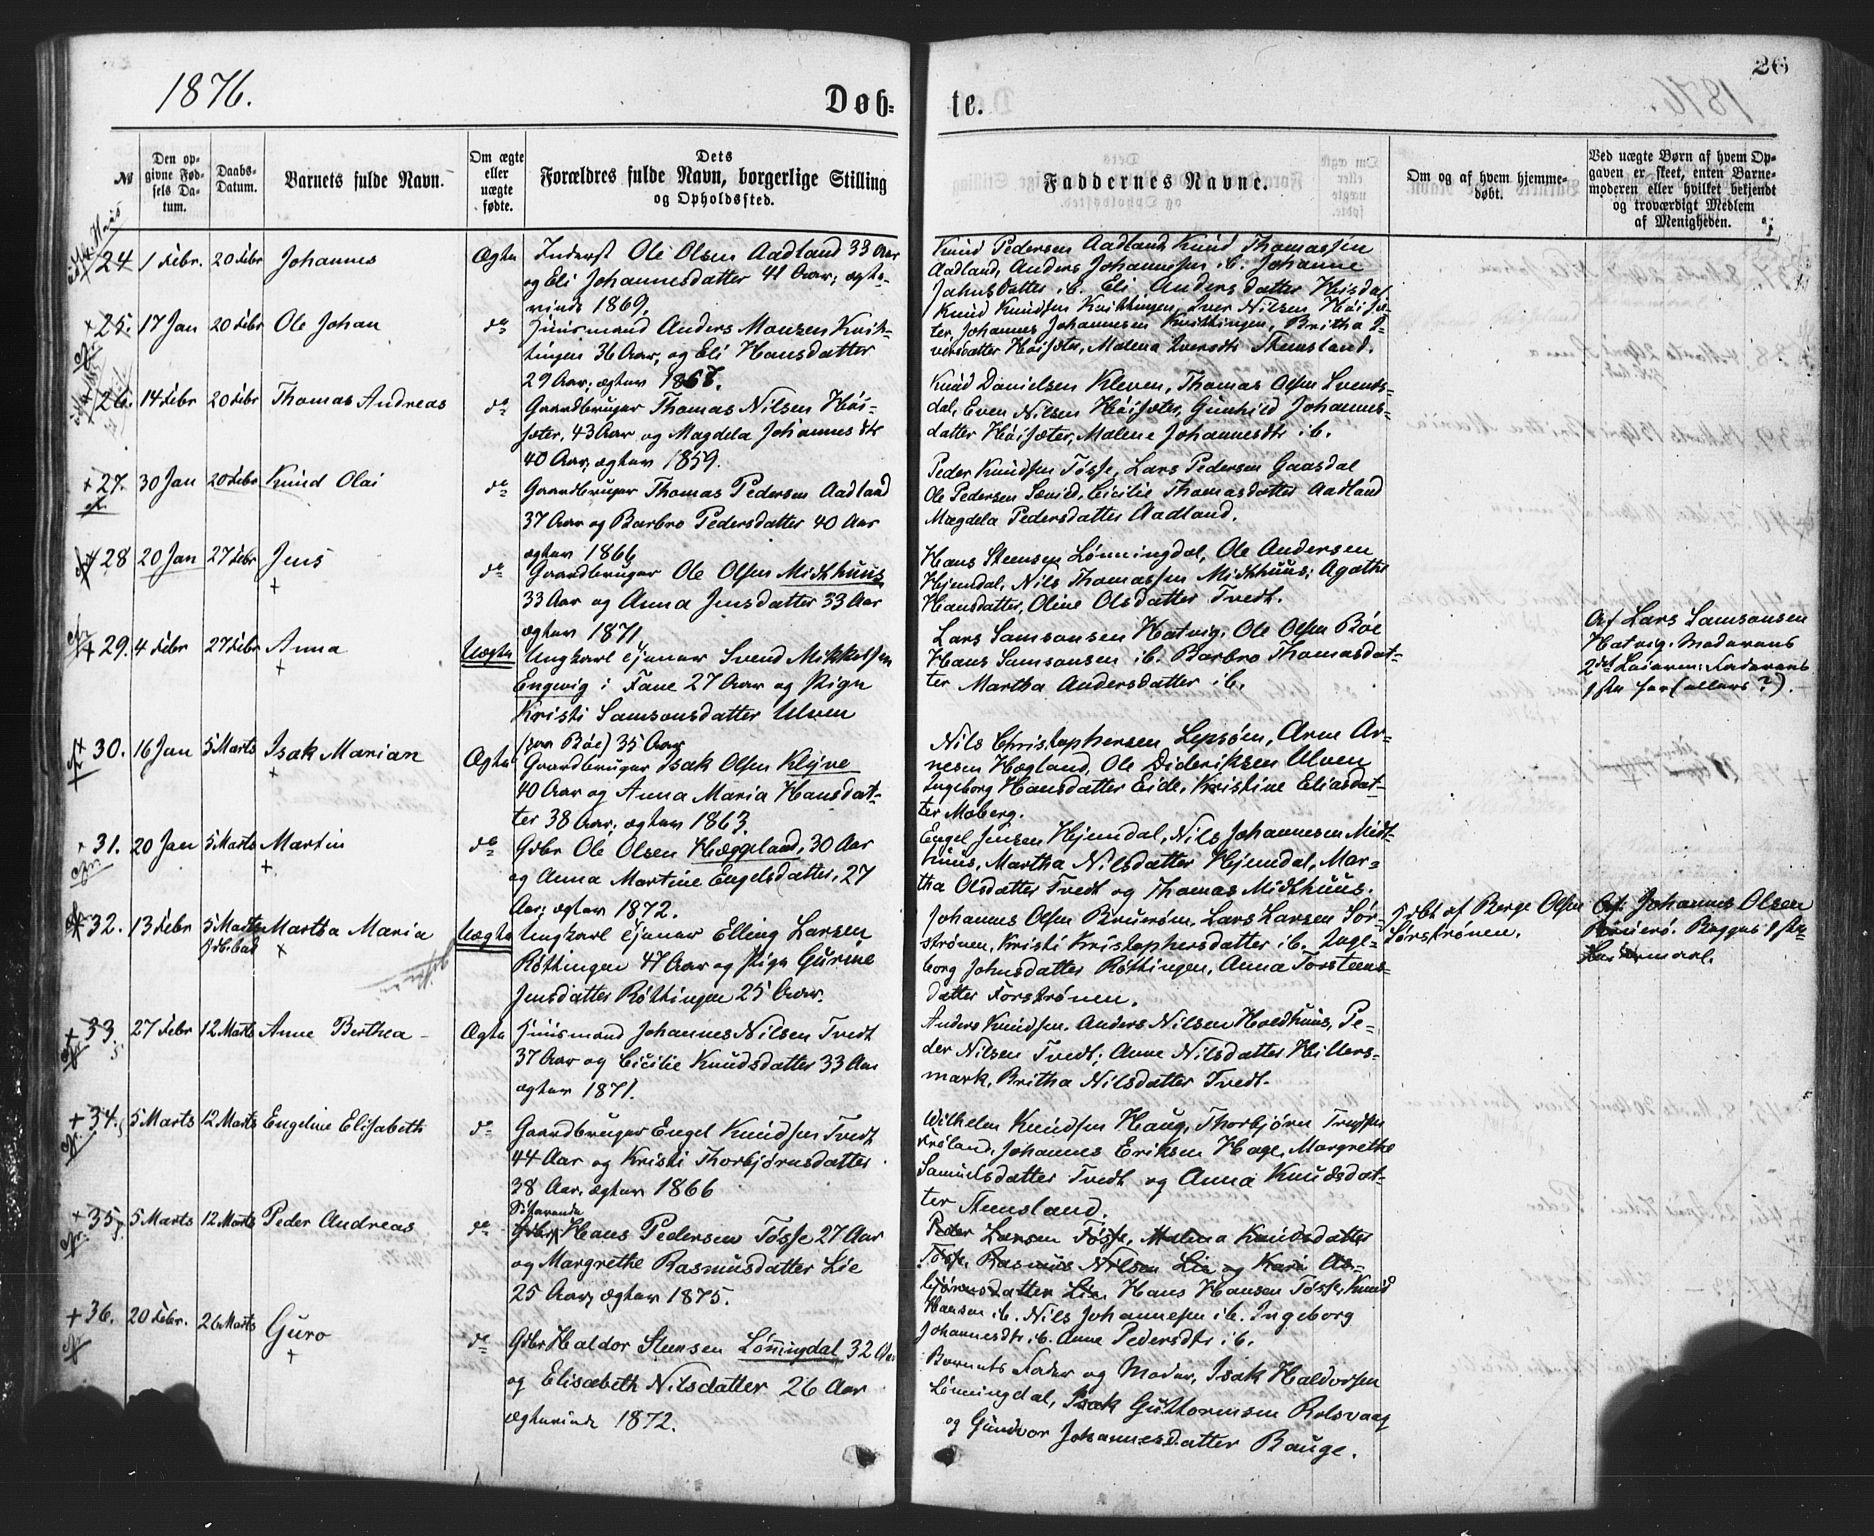 1876.
Døb-
te.
26
№
Den op-
givne Fød-
sels Da-
tum.
Daabs-
Datum.
Barnets fulde Navn.
Om ægte
eller
uægte
fødte.
Dets
Forældres fulde Navn, borgerlige Stilling
og Opholdssted.
Faddernes Navne.
Om og af hvem hjemme-
døbt.
Ved uægte Børn af hvem Op-
gaven er skeet, enten Barne-
moderen eller hvilket bekjendt
og troværdigt Medlem
af Menigheden.
24 1 Febr. 20 Febr Johannes Ægte
Inderst Ole Olsen Aadland 33 Aar
og Eli Johannesdatter 41 Aar; ægte-
viede 1869,
Knud Pedersen Aadland Knud Thomassen
Aadland, Anders Johannesen ib. Johanne
ib. Eli Andersdatter Heisdal
+ 25. 17 Jan 20 Febr Ole Johan do
Huusmand Anders Monsen Knik-
tingen 36 Aar, og Eli Hansdatter
29 Aar; ægtev 1867.
Knud Knudsen Iver Nilsen Høisæ-
ter, Johannes Johannesen Britha I-
versdatter Høisæter, Malena Iversdtr Stensland.
26. 14 Febr 20 Febr Thomas Andreas do
Gaardbruger Thomas Nilsen Høi-
sæter, 43 Aar og Magdela Johannesdtr
40 Aar, ægtev 1859.
Knud Danielsen Kleven, Thomas Olsen Svends-
dal, Even Nilsen Høisæter, Gunhild Johannes-
datter Høisæter, Malene Johannesdtr ib.
+ 27. 30 Jan 20 Febr Knud Olai do
Gaardbruger Thomas Pedersen Aadland
37 Aar og Barbro Pedersdatter 40 Aar
ægtev 1866
Peder Knudsen Tøsse, Lars Pedersen Gaasdal
Ole Pedersen Sævid, Cicilie Thomasdatter Aadland
Magdela Pedersdatter Aadland.
28 20 Jan 27 Febr Jens do
+
Gaardbruger Ole Olsen Midthuus
33 Aar og Anna Jensdatter 33 Aar
ægtev 1871
Hans Stensen Lønningdal, Ole Andersen
Hjemdal, Nils Thomassen Midthuus; Agathe
Hansdatter, Oline Olsdatter Tvedt.
+ 29. 4 Febr 27 Febr Anna Uægte
+
Ungkarl tjener Svend Mikkelsen
Engevig i Fane 27 Aar og Pige
Kristi Samsonsdatter Ulven
(for Bøe) 35 Aar
Lars Samsonsen Hatvig, Ole Olsen Bøe
Hans Samsonsen ib. Barbro Thomasdat-
ter Martha Andersdatter ib.
Af Lars Samsonsen
Hatvig. Moderens
2det Leierm: Faderens
1ste for (ellers?).
+ 30. 16 Jan 5 Marts Isak Marian Ægte
+
Gaardbruger Isak Olsen Klyve
40 Aar og Anna Maria Hansdat-
ter 38 Aar; ægtev 1863.
Nils Christophersen Lepsøen, Arne Ar-
nesen Hægland, Ole Dideriksen Ulven
Ingeborg Hansdatter Eide, Kristine Eliasdat-
ter Moberg.
+ 31. 20 Jan 5 Marts Martin do
+
Gdbr Ole Olsen Hæggeland, 30 Aar
og Anna Martine Engelsdatter, 27
Aar; ægtev 1872.
Engel Jensen Hjemdal, Nils Johannesen Midt-
huus, Martha Nilsdatter Hjemdal, Mar-
tha Olsdatter Tvedt og Thomas Midthuus.
32. 13 Febr 5 Marts Martha Maria Uægte
+
Ungkarl tjener Elling Larsen
Røttingen 47 Aar og Pige Gurine
Jensdatter Røttingen 25 Aar.
Johannes Olsen Bruerøen, Lars Larsen Sør-
strønen, Kristi Kristophersdatter ib. Inge-
borg Johnsdatter Røttingen, Anna Torsteens-
datter Sørstrønen.
Hdbt af Berge Olsen
Sørstrønen.
Af Johannes Olsen
Bruerø. Begges 1ste
Leiermaal.
+ 33. 27 Febr 12 Marts Anne Berthea Ægte
Huusmand Johannes Nilsen Tvedt
37 Aar og Cicilie Knudsdatter 33 Aar
ægtev 1871.
Anders Knudsen, Anders Nilsen Holdhuus, Pe-
der Nilsen Tvedt; Anne Nilsdatter Hillers-
mark, Britha Nilsdatter Tvedt.
+ 34. 5 Marts 12 Marts Engeline Elisabeth do
Gaardbruger Engel Knudsen Tvedt
44 Aar og Kristi Thorbjørnsdatter
38 Aar, ægtev 1866
Wilhelm Knudsen Haug, Thorbjørn
Johannes Eriksen Hage, Margrethe
Samuelsdatter Tvedt og Anna Knudsdat-
ter Stensland.
+ 35. 5 Marts 12 Marts Peder Andreas do
Gdbr Hans Pedersen Tøsse 27 Aar
og Margrethe Rasmusdatter Lie
25 Aar, ægtev 1875.
Peder Larsen Tøsse, Malena Knudsdatter
Tøsse, Rasmus Nilsen Lie og Kari As-
bjørnsdatter Lie Hans Hansen Tøsse, Knud
Hansen ib. Nils Johannesen ib. Ingeborg
Johannesdtr ib. Anne Pedersdtr ib.
+ 36. 20 Febr. 26 Marts Guro do
+
Gdbr Haldor Stensen Lønningdal 32 Aar
og Elisabeth Nilsdatter 26 Aar
ægteviede 1872.
Barnets Fader og Moder, Isak Haldorsen
Lønningdal, Isak Guttormsen Rolsvaag
og Gundvor Johannesdatter Bauge.